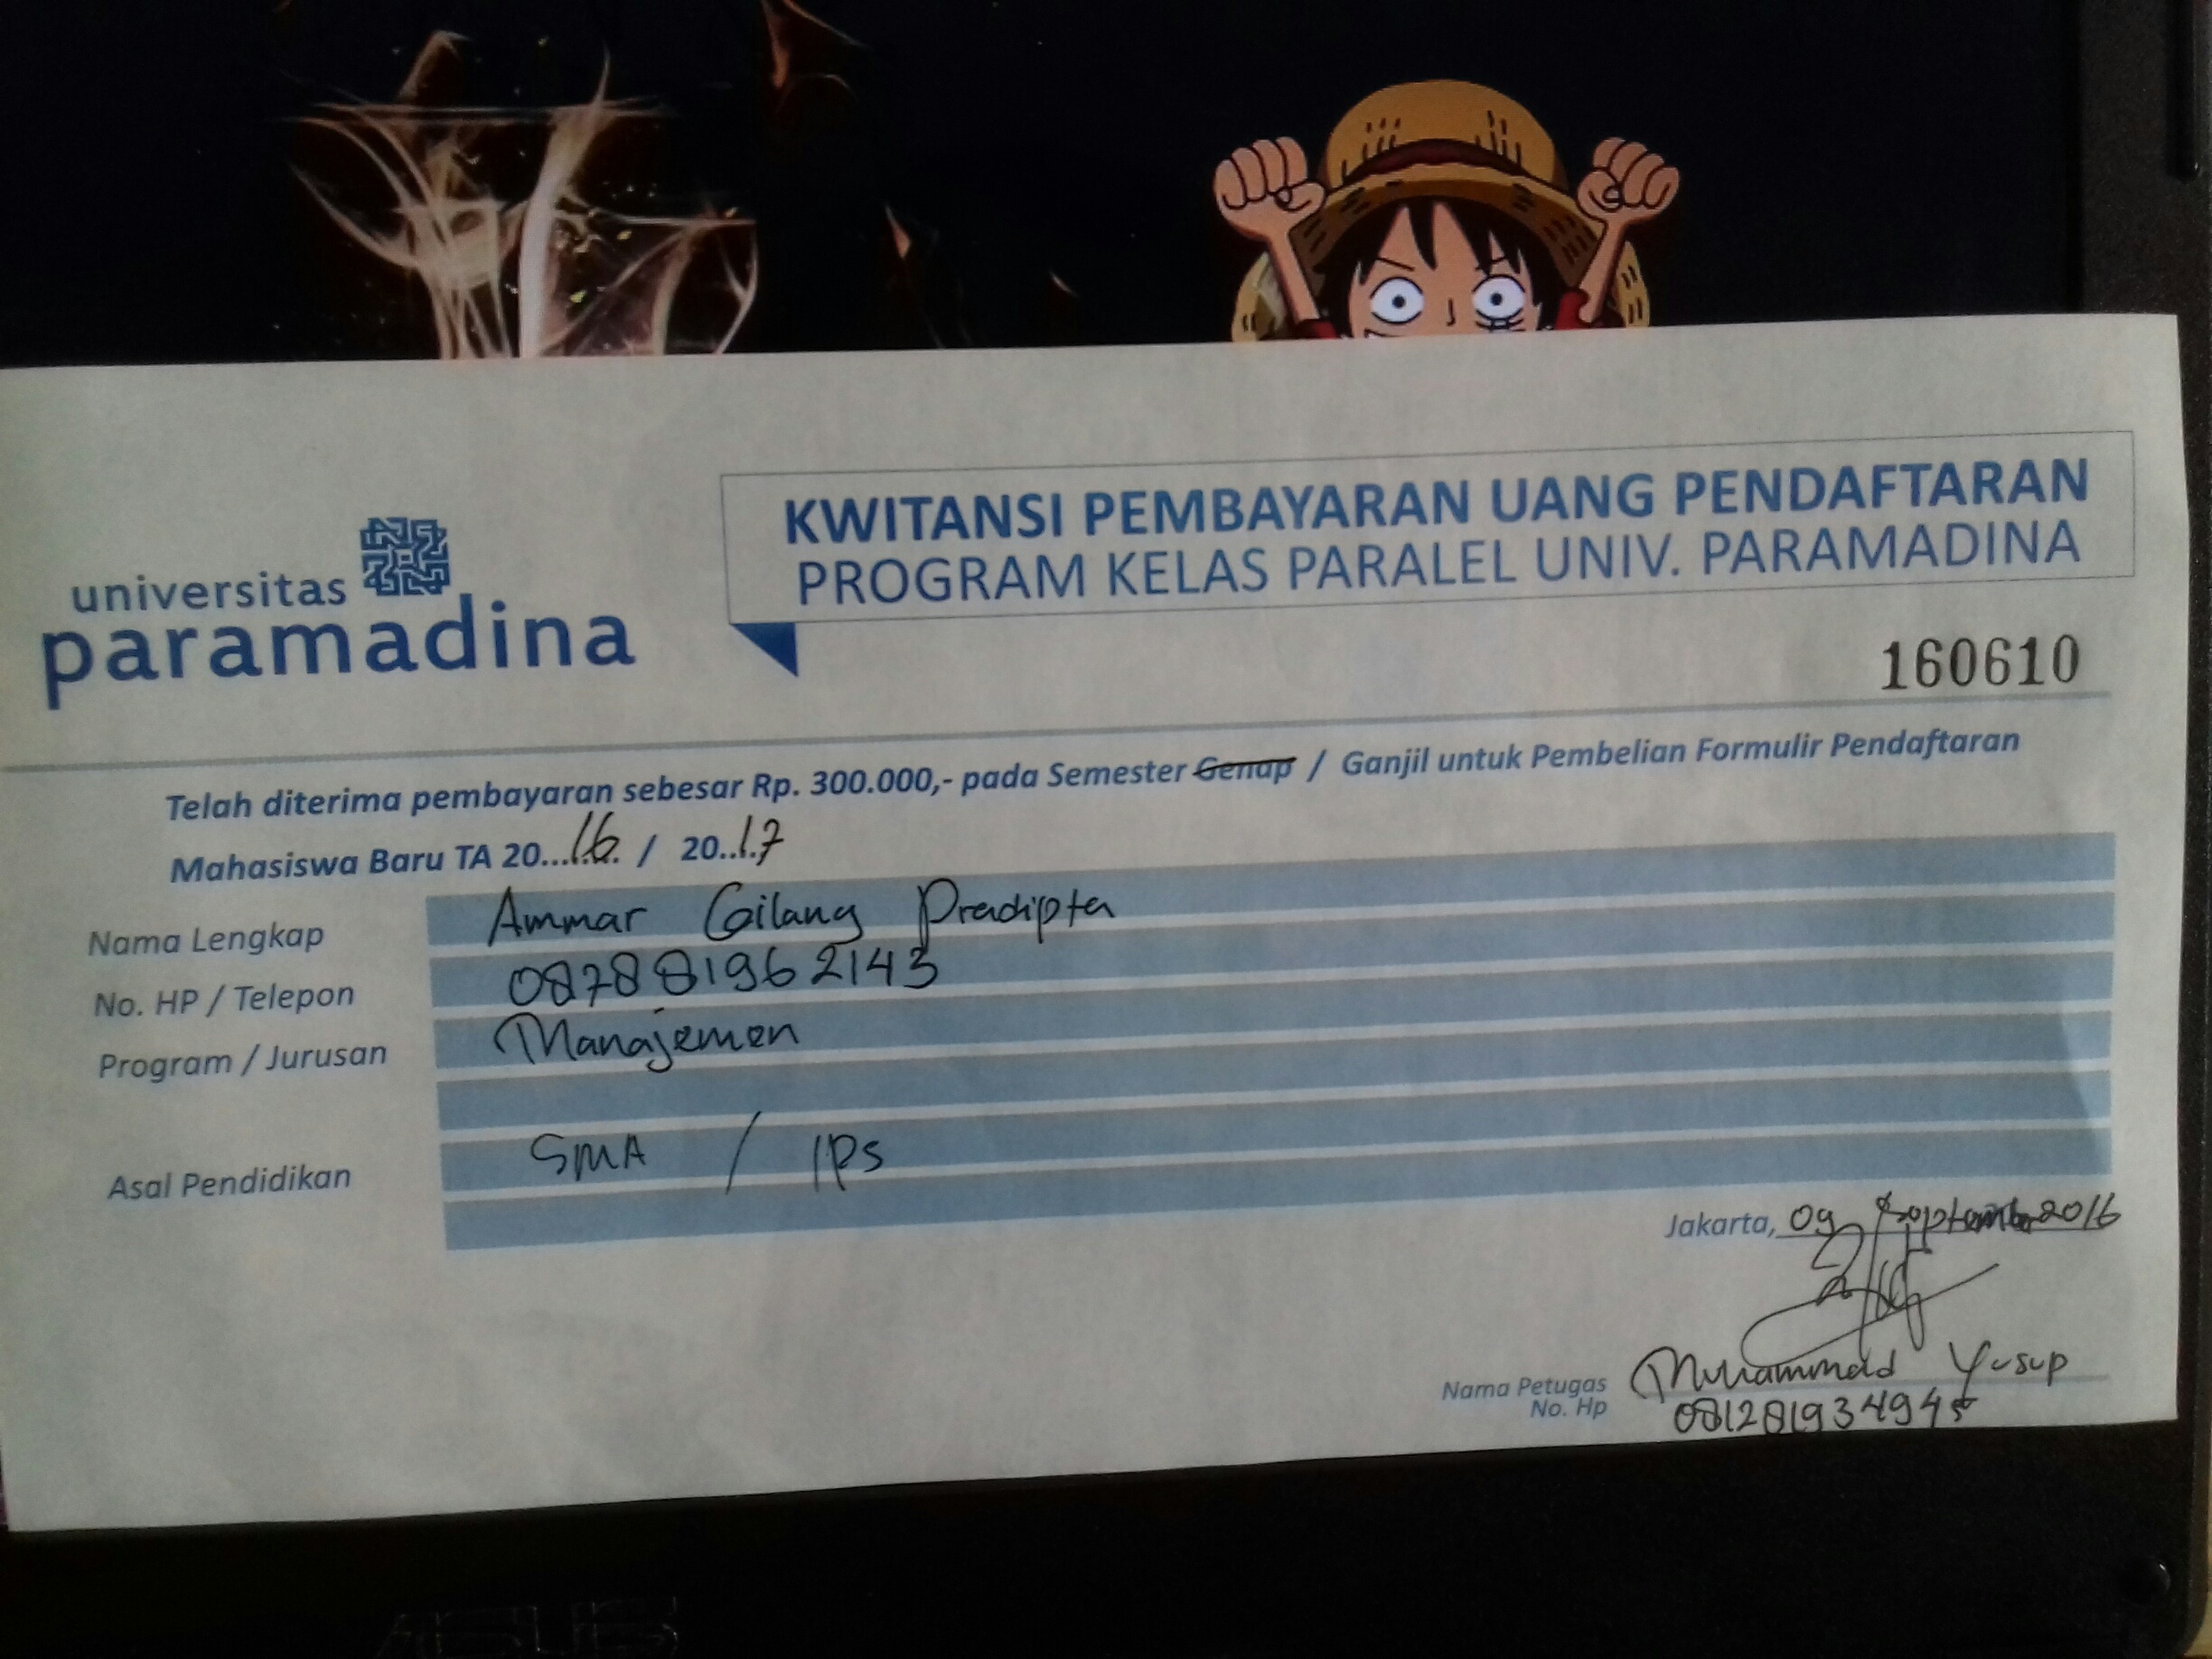 universitas
paramadina
KWITANSI PEMBAYARAN UANG PENDAFTARAN
PROGRAM KELAS PARALEL UNIV. PARAMADINA
160610
Telah diterima pembayaran sebesar Rp. 300.000,- pada Semester Genap / Ganjil untuk Pembelian Formulir Pendaftaran
Mahasiswa Baru TA 20...16. / 20..17
Nama Lengkap Ammar Gilang Pradipta
No. HP / Telepon 087881962143
Program / Jurusan Manajemen
Asal Pendidikan SMA / IPS
Jakarta, 09 September 2016
Nama Petugas Muhammad Yusup
No. Hp 081281934945
ASUS